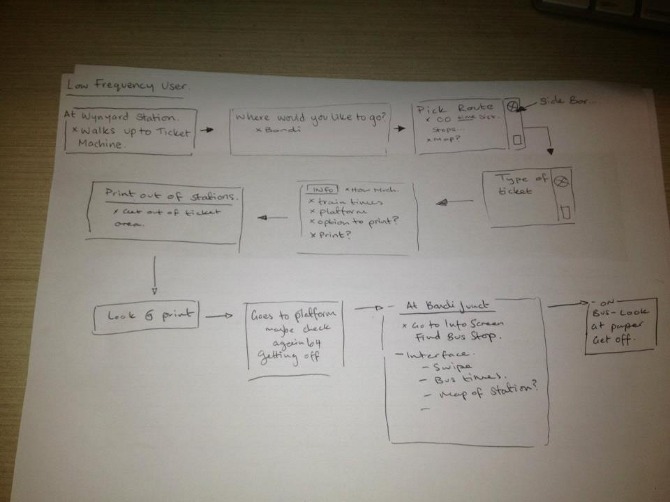 Low Frequency User.
At Wynyard Station.
x Walks up to Ticket
Machine.
Where would you like to go?
x Bondi
Pick Route
Stops...
x Map?
Side Bar...
Type of
ticket
INFO x How Much.
x train times
x platform
x option to print?
x Print?
Print out of stations.
x Get out of ticket
area.
Look @ print
Goes to platform
maybe check
again b4
getting off
- At Bondi Junct
x Go to Info Screen
Find Bus Stop.
- Interface.
- Swipe
- Bus times.
- Map of Station?
-
- ON
Bus - Look
at paper
Get off.